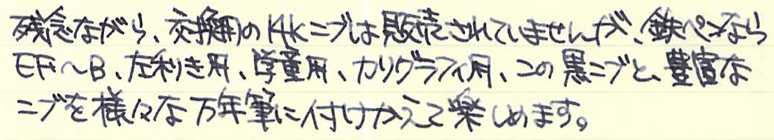 残念ながら、交換用の14Kニブは販売されていませんが、鉄ペンなら
EF〜B、左利き用、学童用、カリグラフィ用、この黒ニブと、豊富な
ニブを様々な万年筆に付けかえて楽しめます。